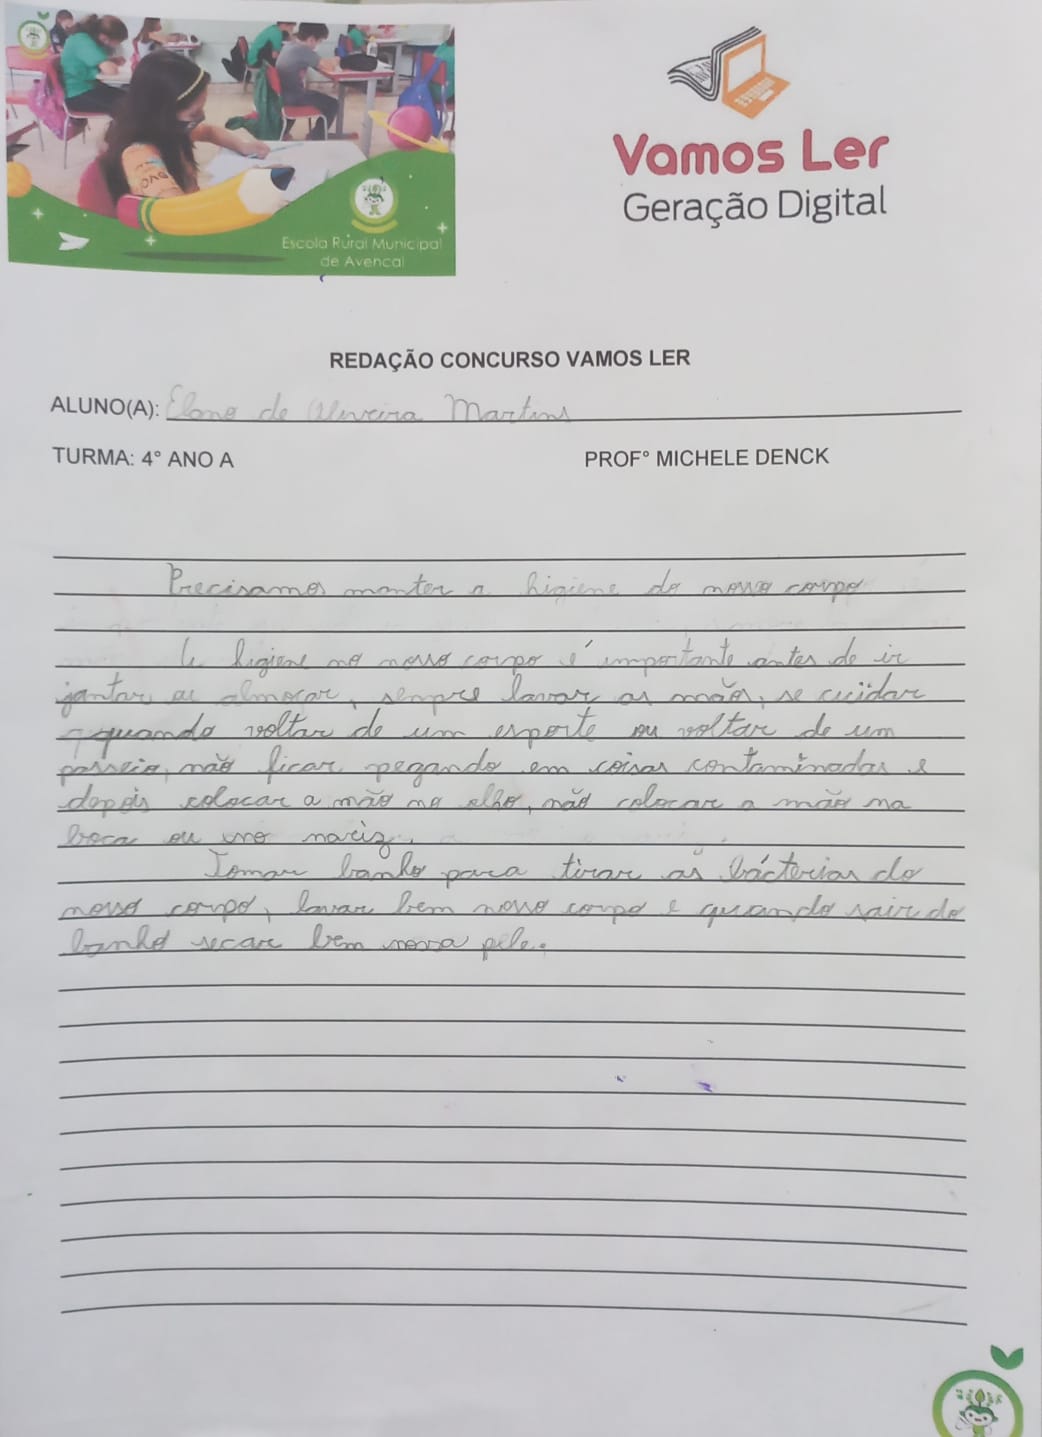 Escola Rural Municipal
de Avencal
Vamos Ler
Geração Digital
REDAÇÃO CONCURSO VAMOS LER
ALUNO(A): Elano de Oliveira Martins
TURMA: 4° ANO A
PROF° MICHELE DENCK
Precisamos manter a higiene do nosso corpo
A higiene no nosso corpo é importante antes de ir
jantar ou almoçar, sempre lavar as mãos, se cuidar
quando voltar de um esporte ou voltar de um
passeio, não ficar pegando em coisas contaminadas e
depois colocar a mão no olho, não colocar a mão na
boca ou no nariz.
Tomar banho para tirar as bácterias do
nosso corpo, lavar bem nosso corpo e quando sair do
banho secar bem nossa pele.